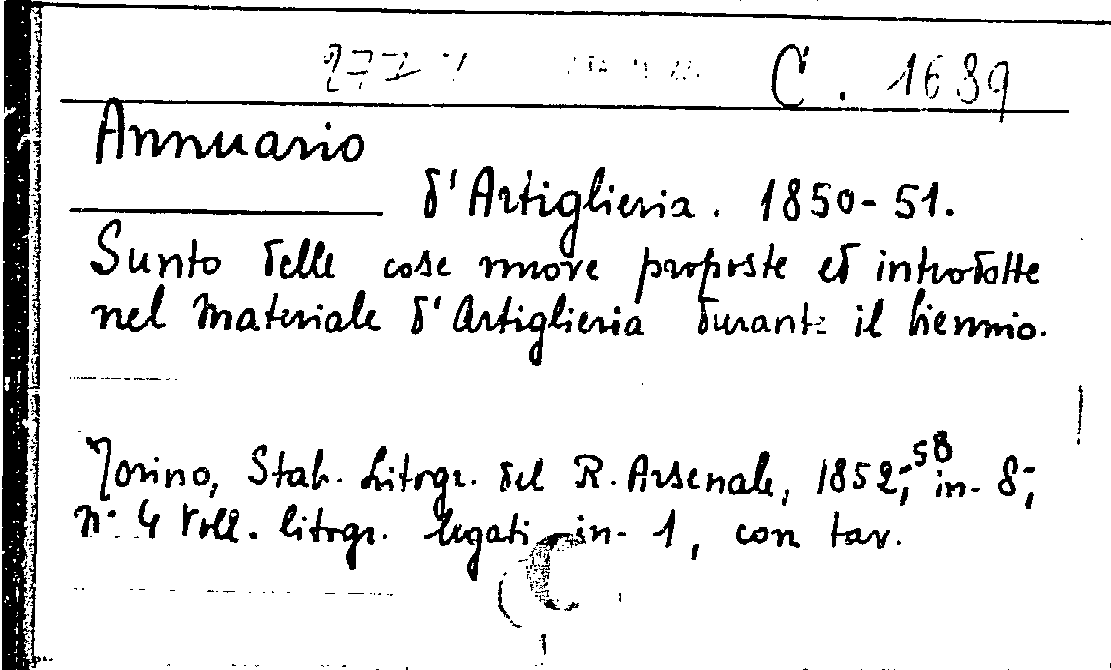 C. 1639
Annuario
d'Artiglieria. 1850-51.
Sunto delle cose nuove proposte ed introdotte
nel materiale d'Artiglieria durante il biennio.
Torino, Stab. Litogr. del R. Arsenale, 1852,-58 in-8-,
n. 4 Voll. litogr. legati in-1, con tav.